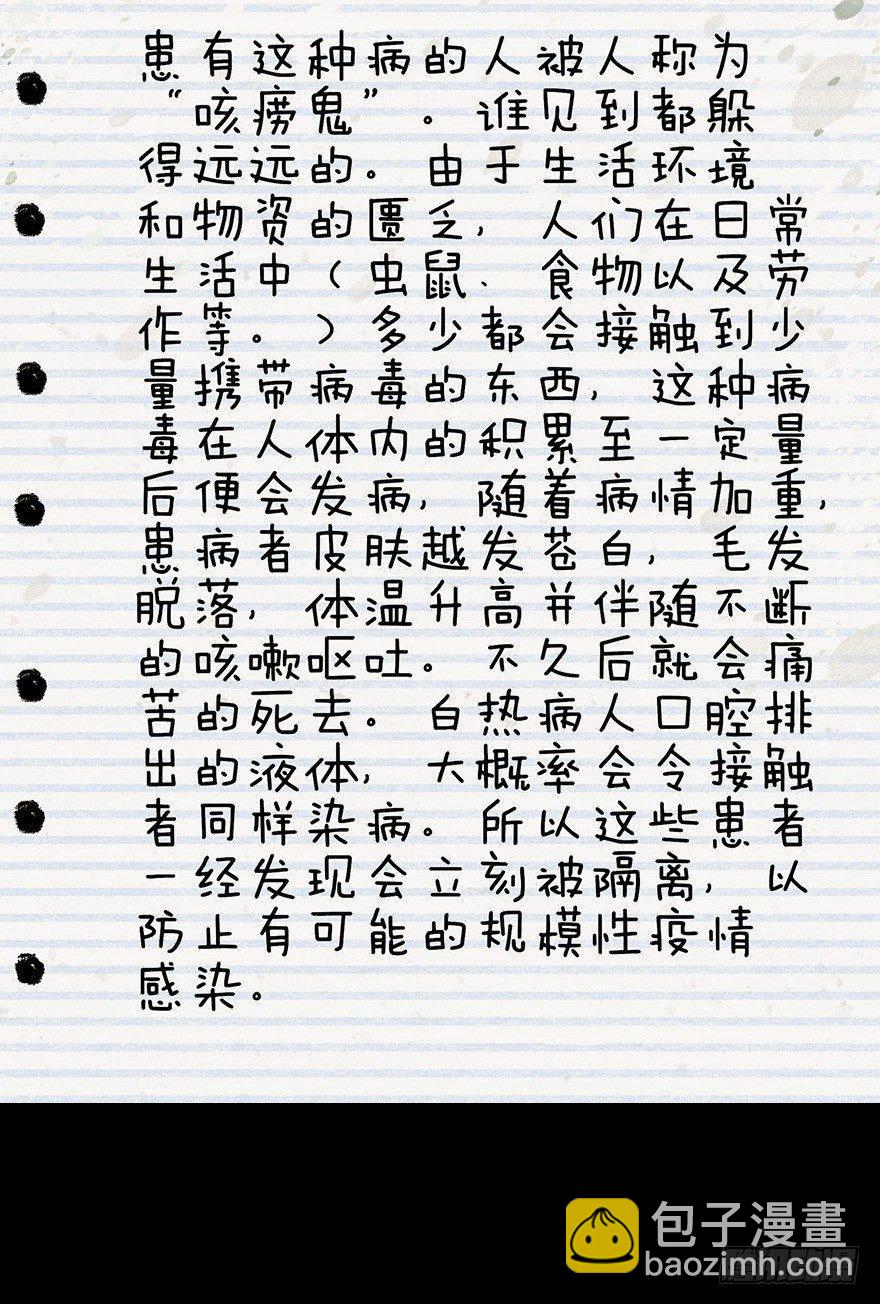 患有这种病的人被人称为
“咳痨鬼”。谁见到都躲
得远远的。由于生活环境
和物资的匮乏，人们在日常
生活中（虫鼠、食物以及劳
作等。）多少都会接触到少
量携带病毒的东西，这种病
毒在人体内的积累至一定量
后便会发病，随着病情加重，
患病者皮肤越发苍白，毛发
脱落，体温升高并伴随不断
的咳嗽呕吐。不久后就会痛
苦的死去。白热病人口腔排
出的液体，大概率会令接触
者同样染病。所以这些患者
一经发现会立刻被隔离，以
防止有可能的规模性疫情
感染。
包子漫畫
baozimh.com